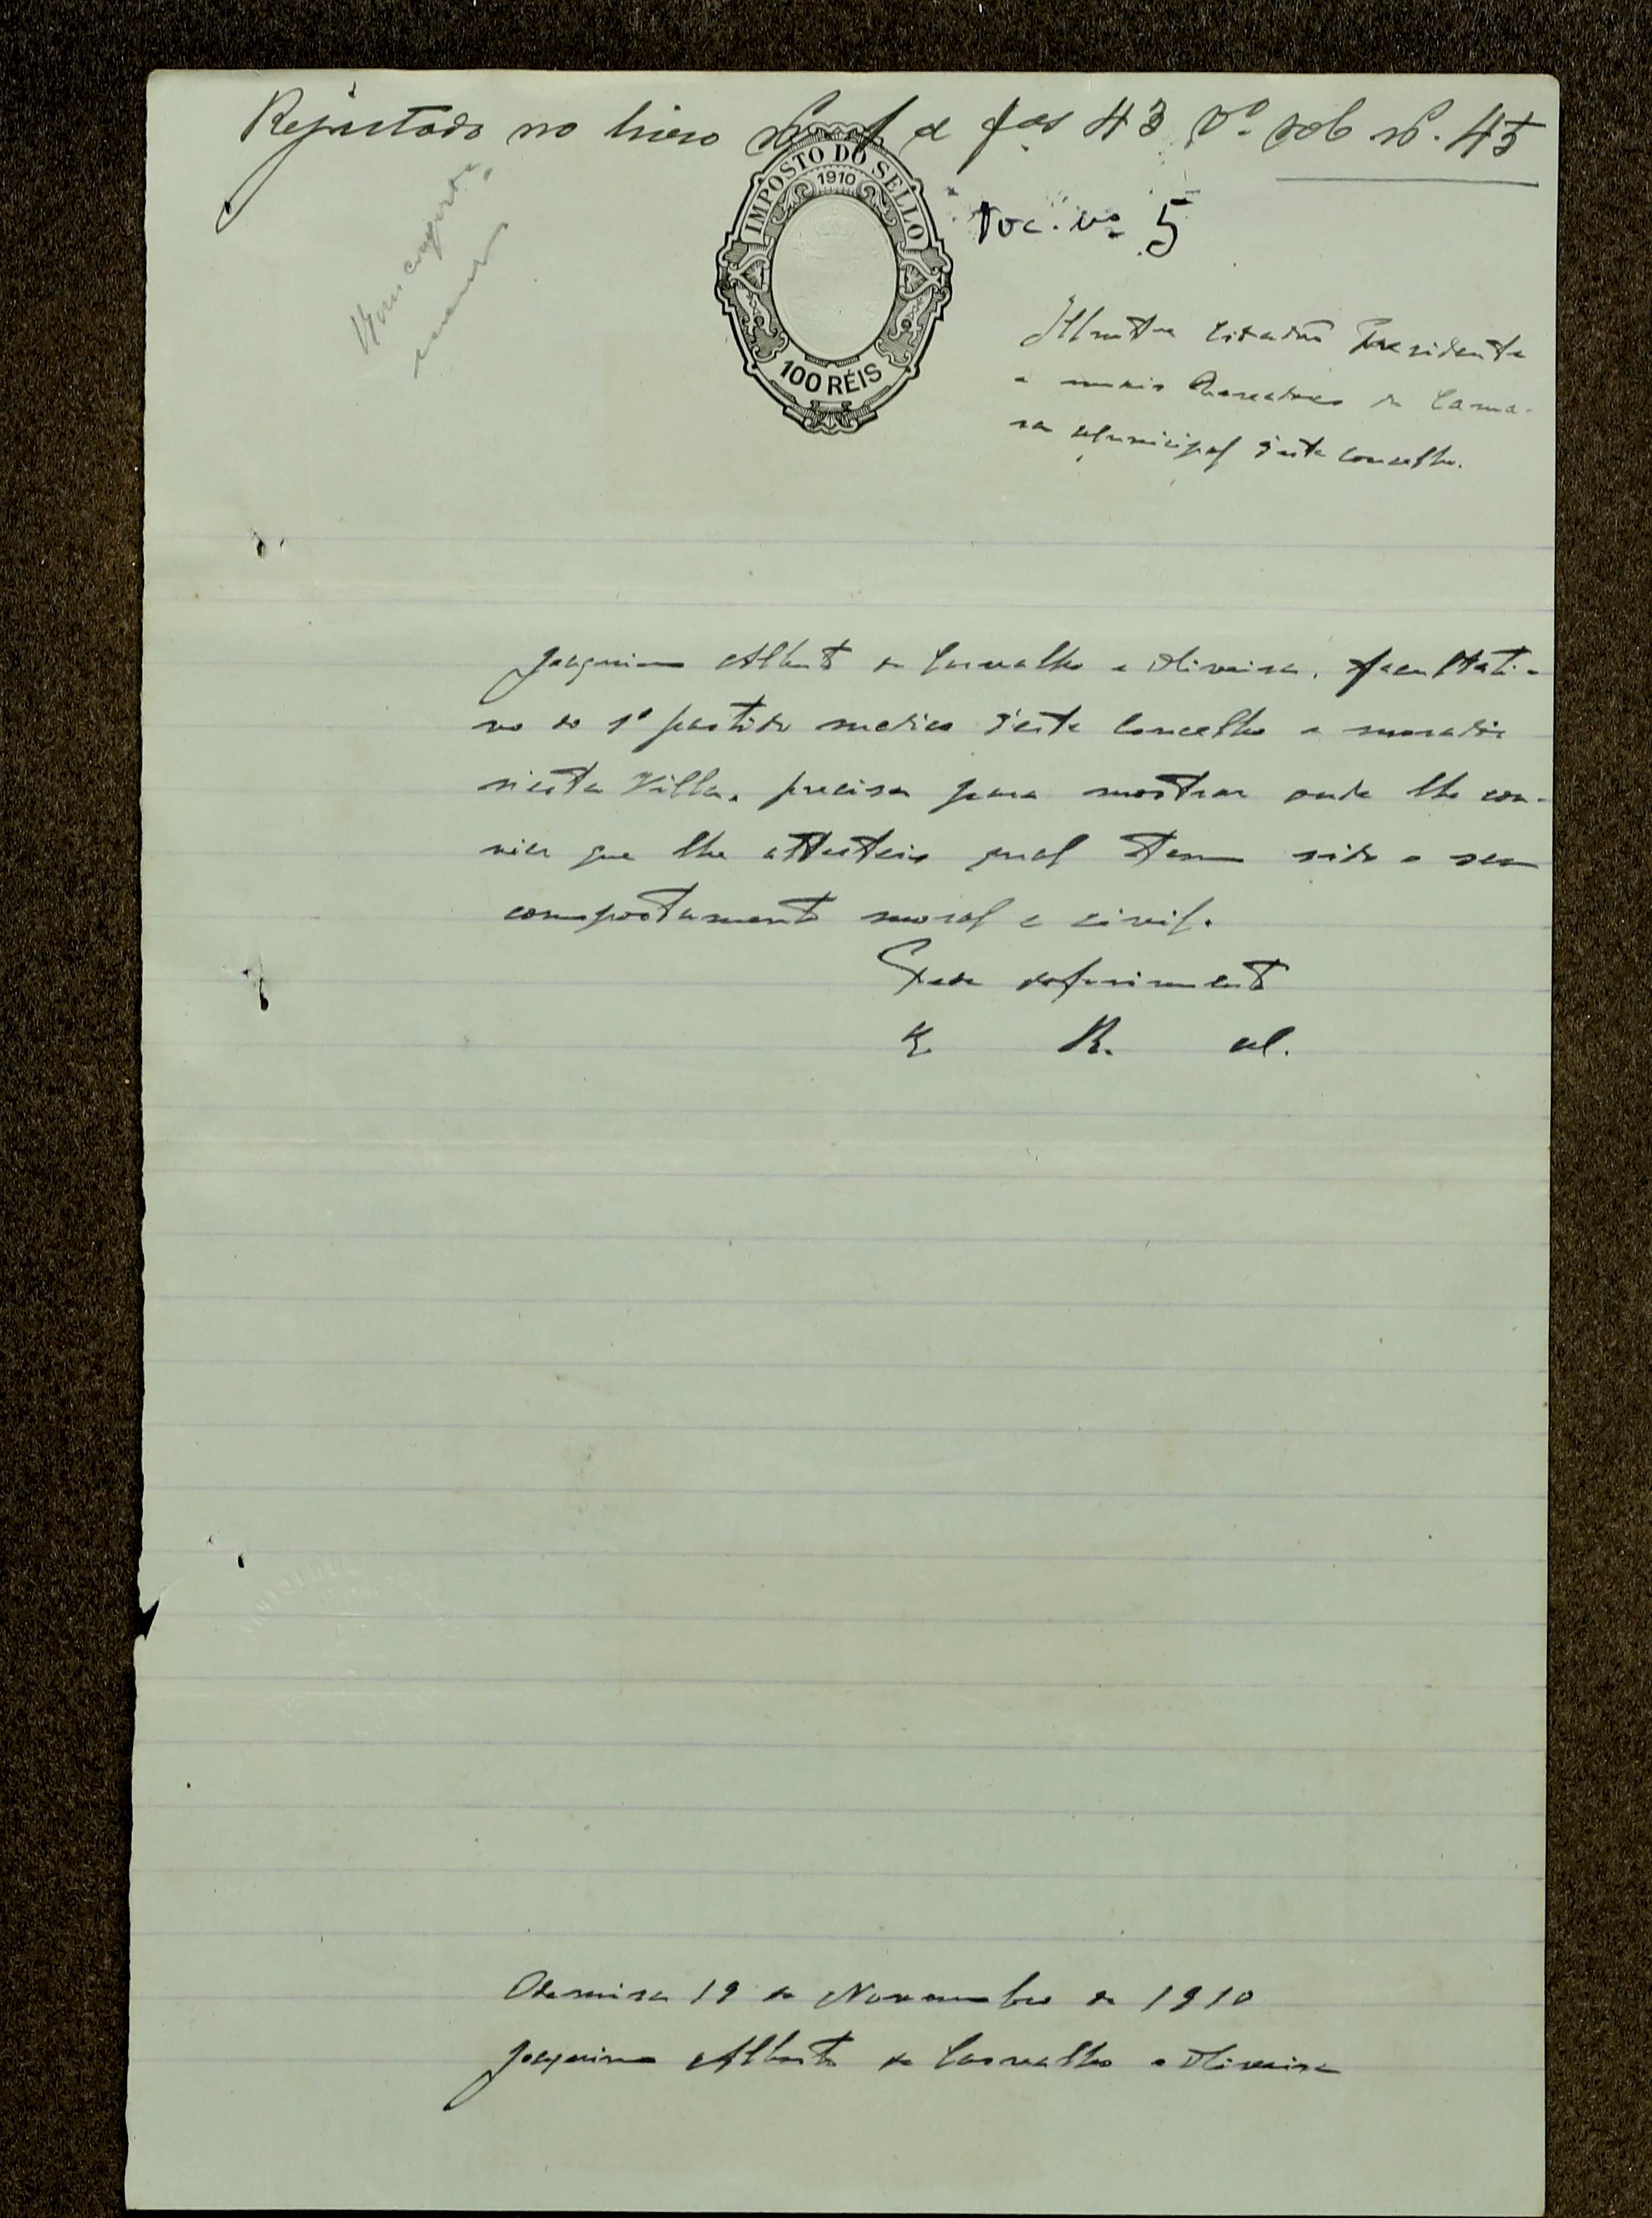 Rejistado no livro Nº 1 a fas 43 vº sob nº. 45
Bom comporta-
mento
IMPOSTO DO SELLO
1910
100 RÉIS
Doc. nº 5
Illustre Cidadão Presidente
e mais Vereadores da Cama-
ra Municipal d'este Concelho.
Joaquim Alberto de Carvalho e Oliveira, facultati-
vo do 1º partido medico d'este Concelho e morador
n'esta Villa, precisa para mostrar onde lhe con-
vier que lhe attesteis qual tem sido o seu
comportamento moral e civil.
Pede deferimento
E. R. M.
Odemira 19 de Novembro de 1910
Joaquim Alberto de Carvalho e Oliveira